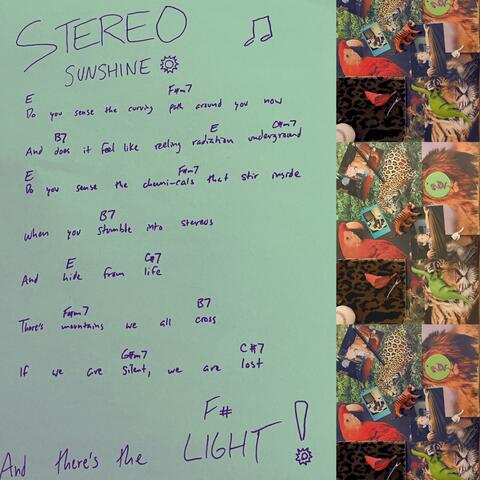 STEREO
SUNSHINE
E F#m7
Do you sense the curving path around you now
B7 E C#m7
And does it feel like reeling radiation underground
E F#m7
Do you sense the chemi-cals that stir inside
B7
When you stumble into stereos
E C#7
And hide from life
F#m7 B7
There's mountains we all cross
G#m7 C#7
If we are silent, we are lost
F#
And there's the LIGHT!